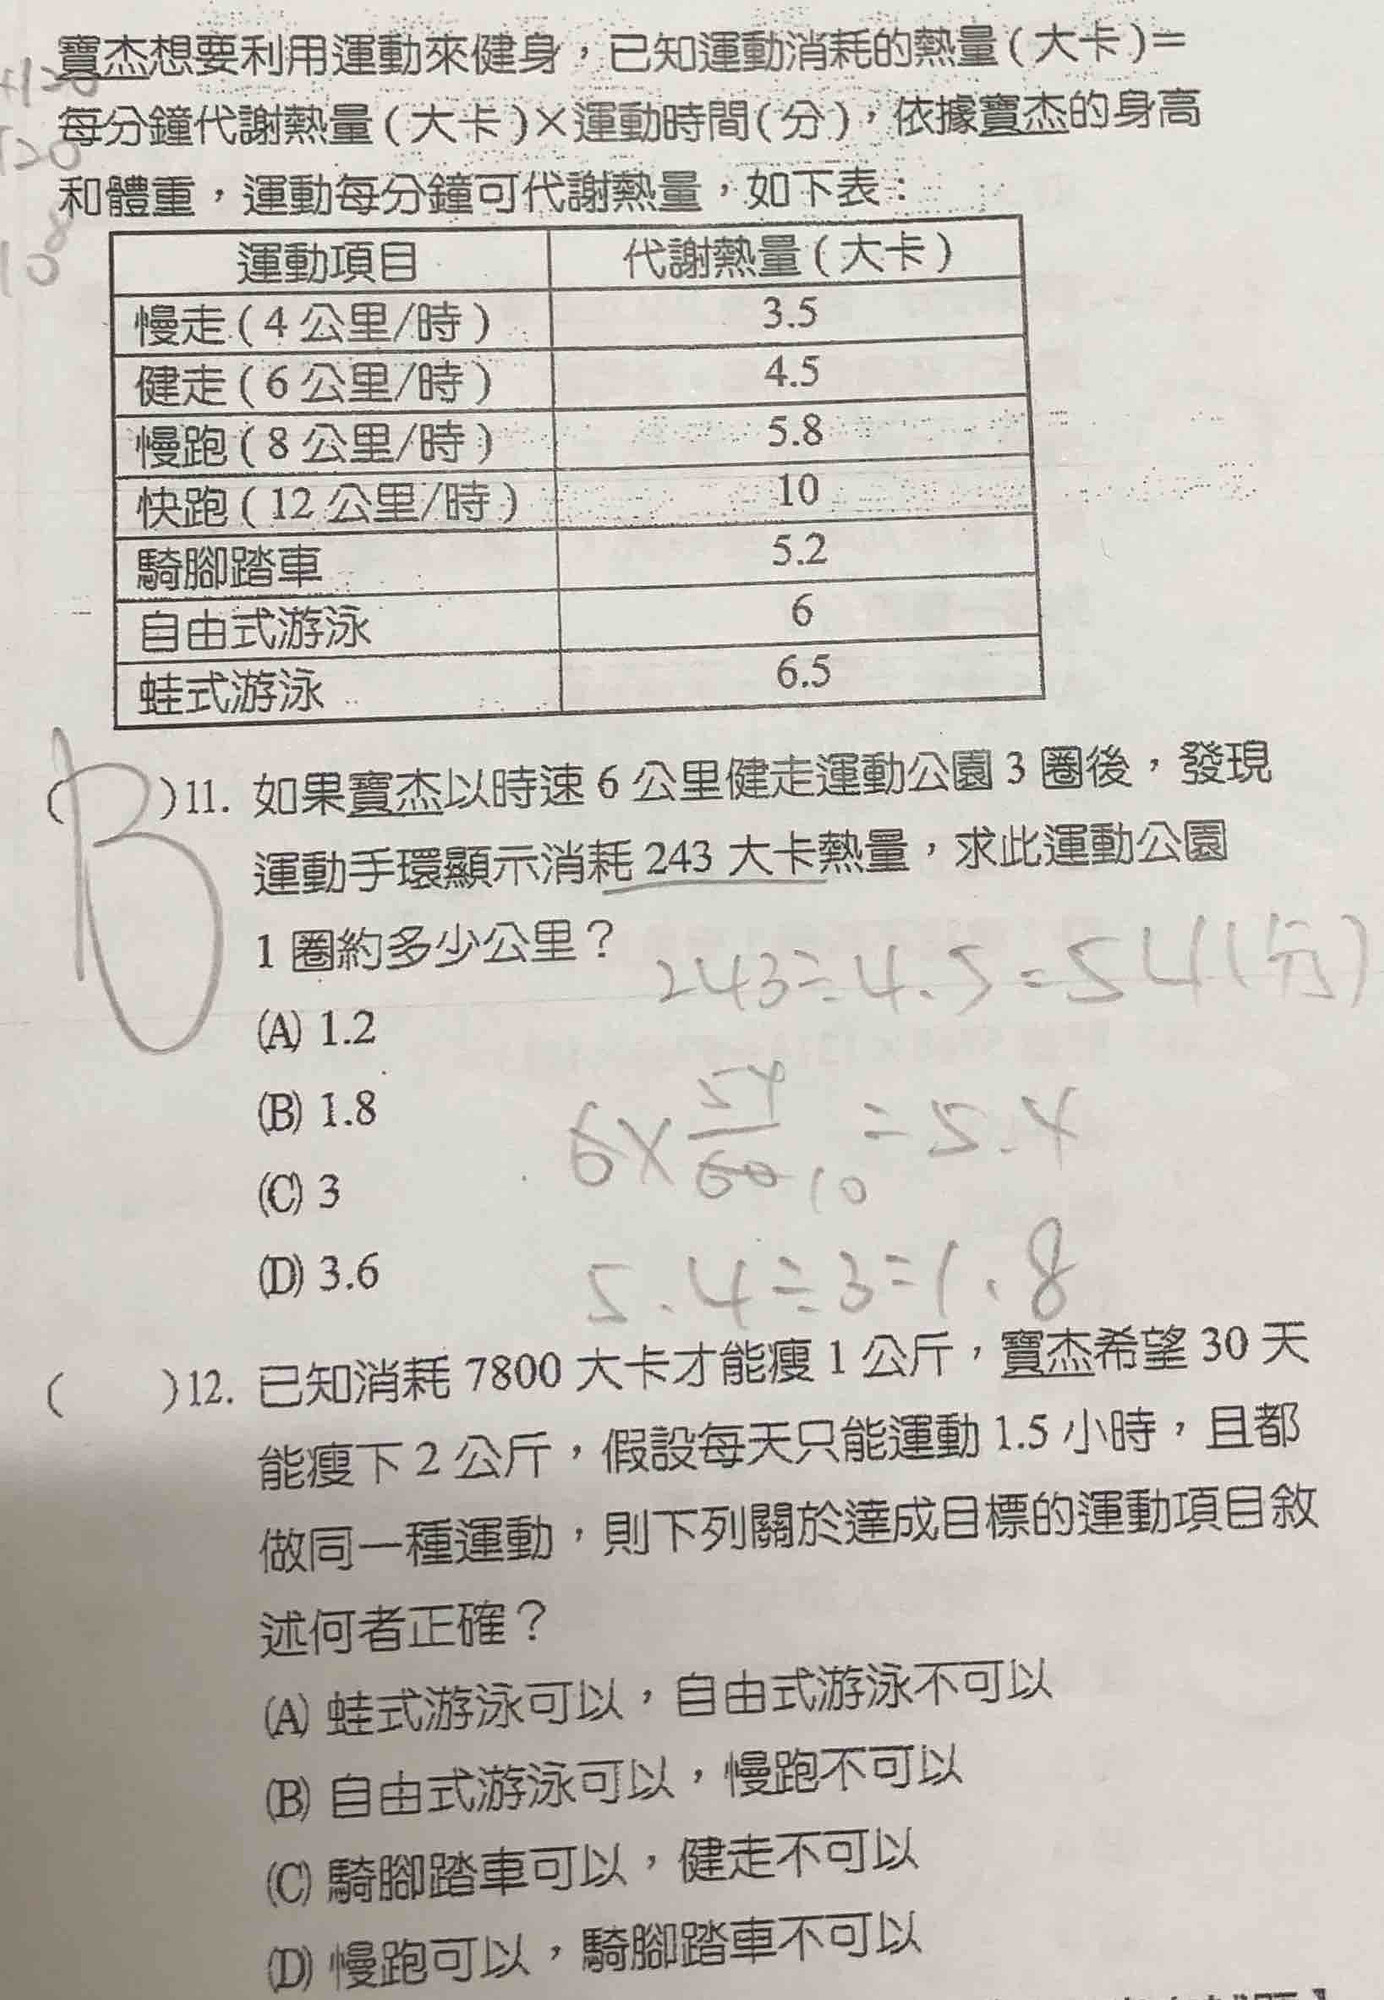 寶杰想要利用運動來健身，已知運動消耗的熱量(大卡)=
每分鐘代謝熱量(大卡)×運動時間(分)，依據寶杰的身高
和體重，運動每分鐘可代謝熱量，如下表：
運動項目 代謝熱量(大卡)
慢走(4公里/時) 3.5
健走(6公里/時) 4.5
慢跑(8公里/時) 5.8
快跑(12公里/時) 10
騎腳踏車 5.2
自由式游泳 6
蛙式游泳 6.5
(B)11. 如果寶杰以時速6公里健走運動公園3圈後，發現
運動手環顯示消耗243大卡熱量，求此運動公園
1圈約多少公里？
243÷4.5=54(分)
(A) 1.2
(B) 1.8
6×54/60 10 =5.4
(C) 3
(D) 3.6
5.4÷3=1.8
( )12. 已知消耗7800大卡才能瘦1公斤，寶杰希望30天
能瘦下2公斤，假設每天只能運動1.5小時，且都
做同一種運動，則下列關於達成目標的運動項目敘
述何者正確？
(A) 蛙式游泳可以，自由式游泳不可以
(B) 自由式游泳可以，慢跑不可以
(C) 騎腳踏車可以，健走不可以
(D) 慢跑可以，騎腳踏車不可以